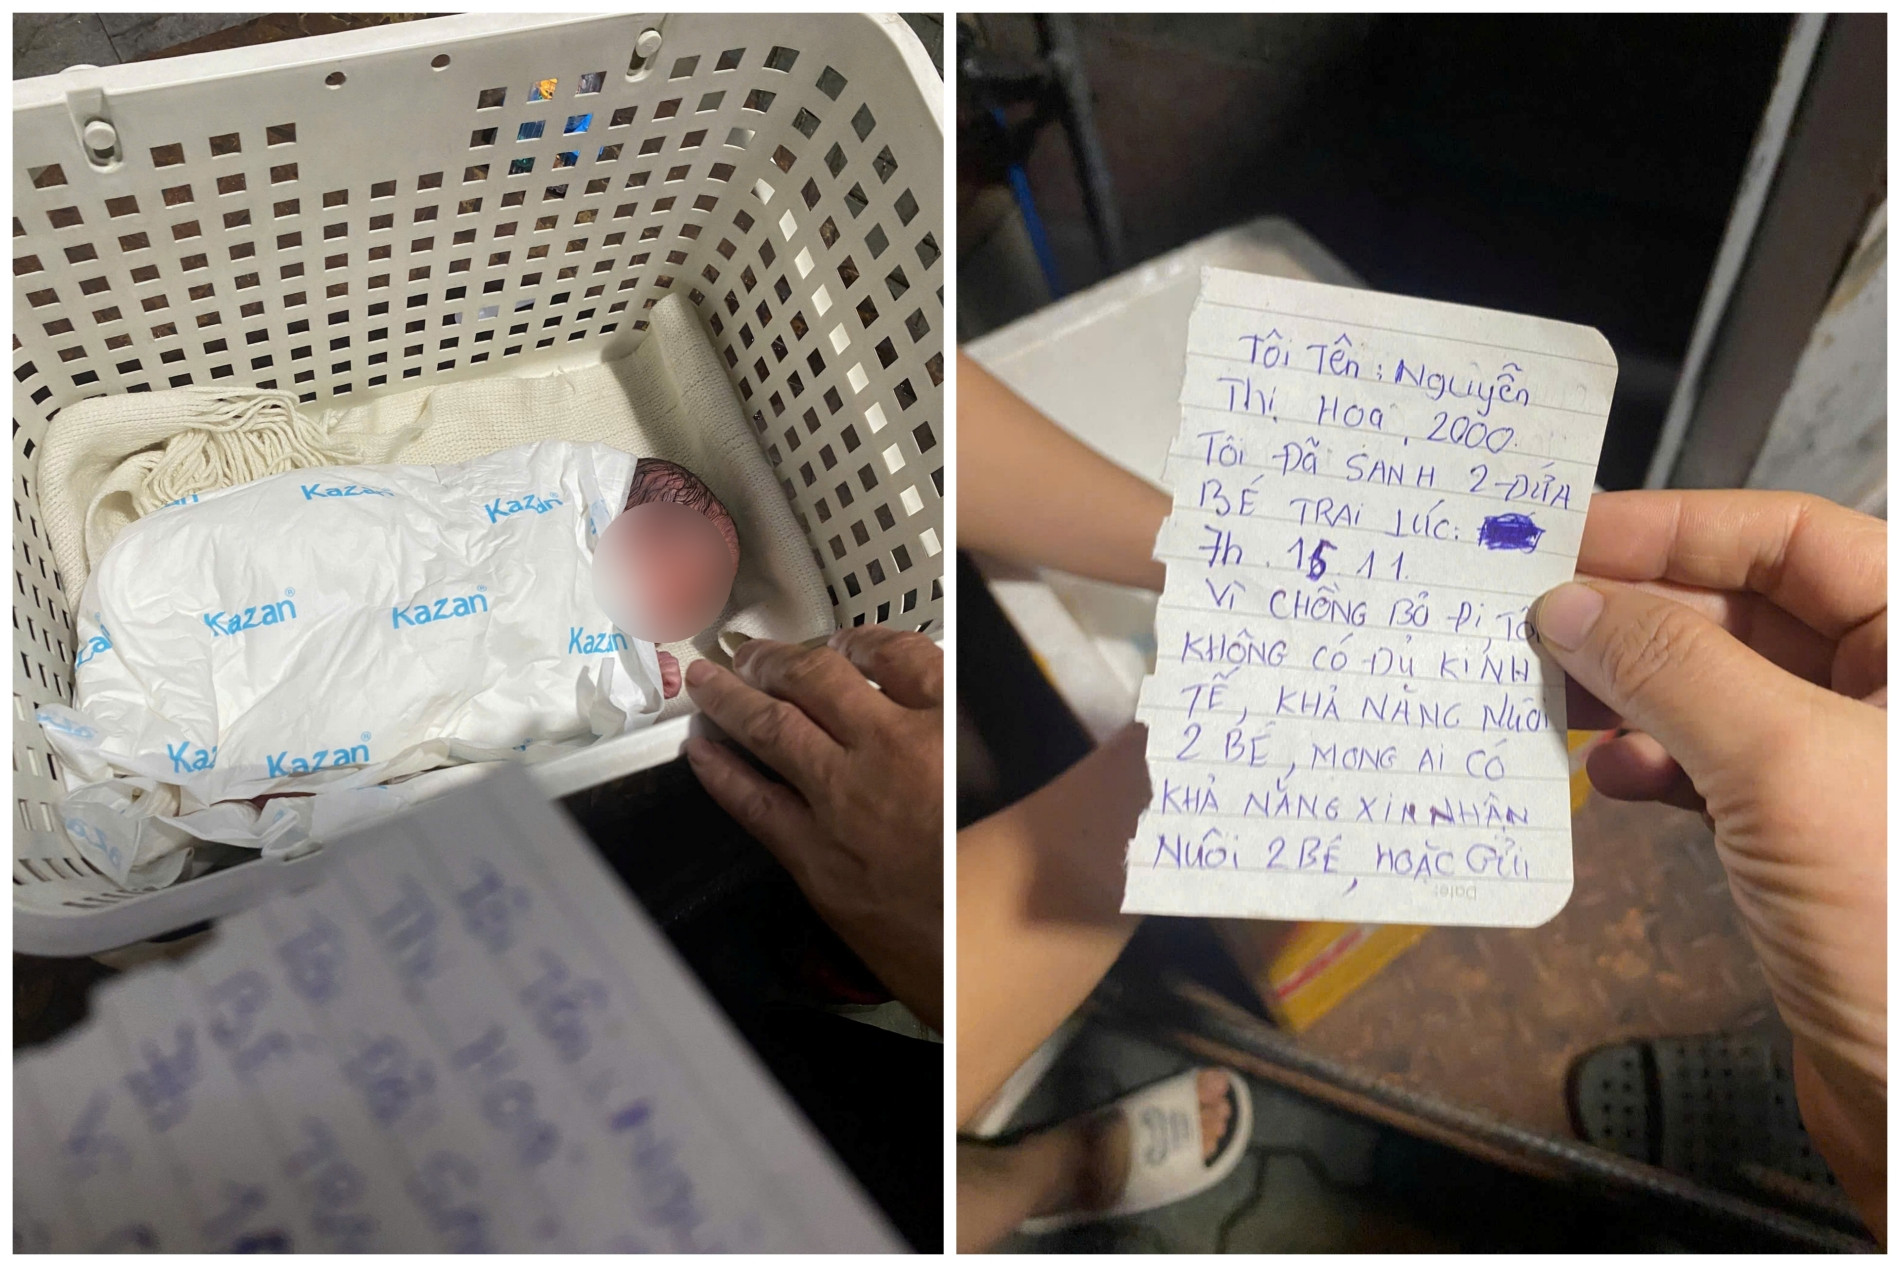 Kazan
Kazan®
Kazan®
Kazan®
Kazan
Kazan®
Tôi Tên : Nguyễn
Thị Hoa , 2000.
Tôi Đã SANH 2 ĐỨA
BÉ TRAi LÚC:
7h . 15 . 11.
Vì CHỒNG BỎ Đi, TÔi
KHÔNG CÓ ĐỦ KiNH
TẾ, KHẢ NĂNG NUÔi
2 BÉ, MONG Ai CÓ
KHẢ NĂNG XiN NHẬN
NUÔi 2 BÉ, HOẶC GỬi
Date: